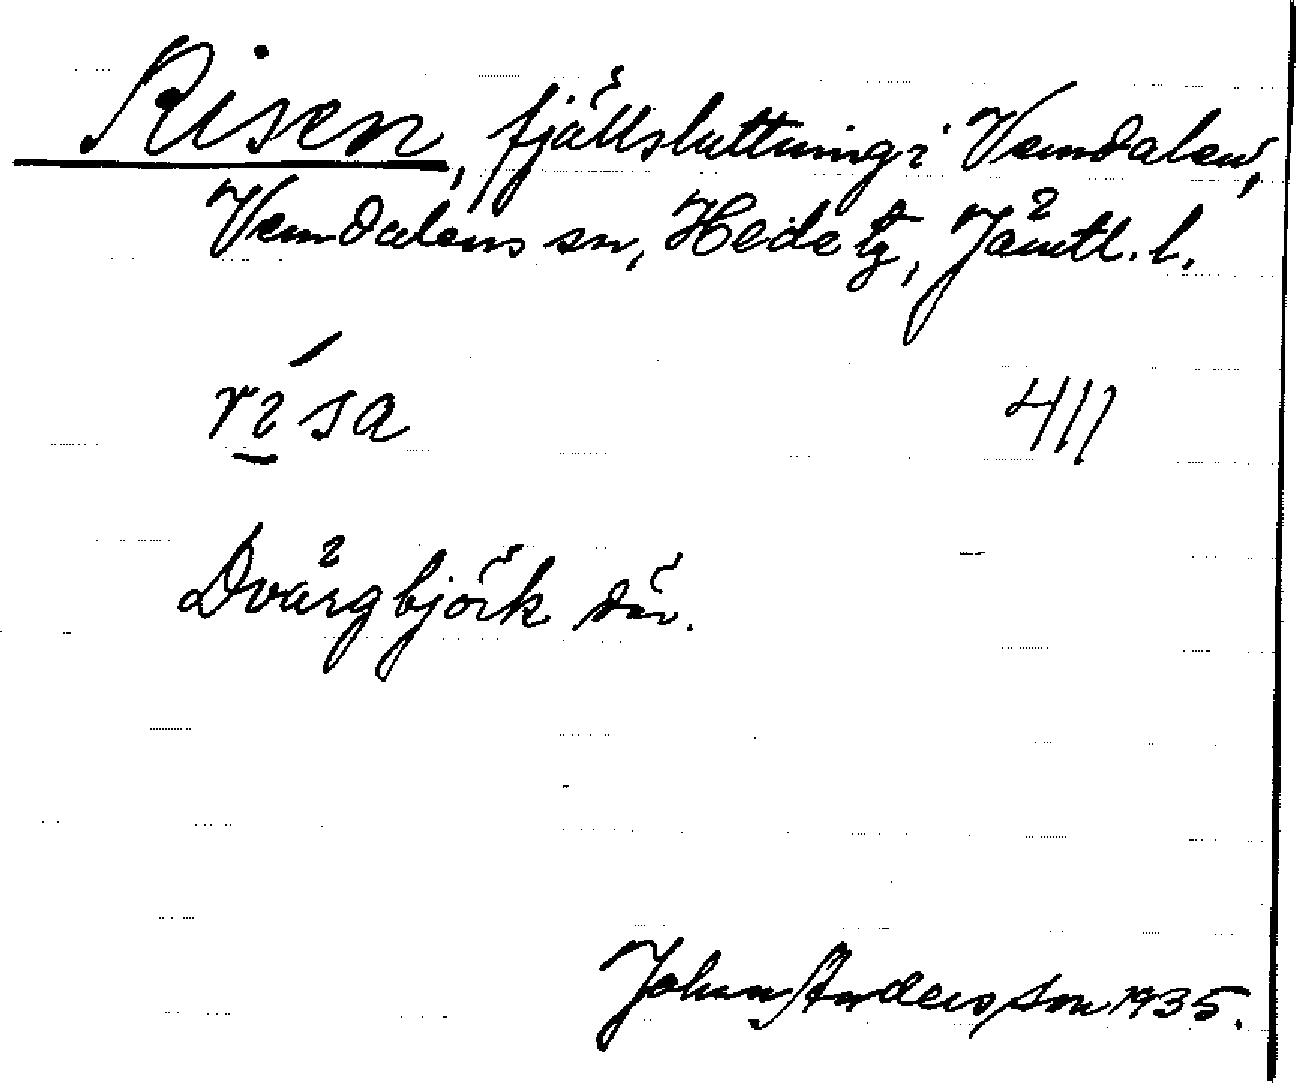 Risen, fjällsluttning i Vemdalen,
Vemdalens sn, Hede tg, Jämtl. l.
rísa 411
Dvärgbjörk där.
Johan Andersson 1935.